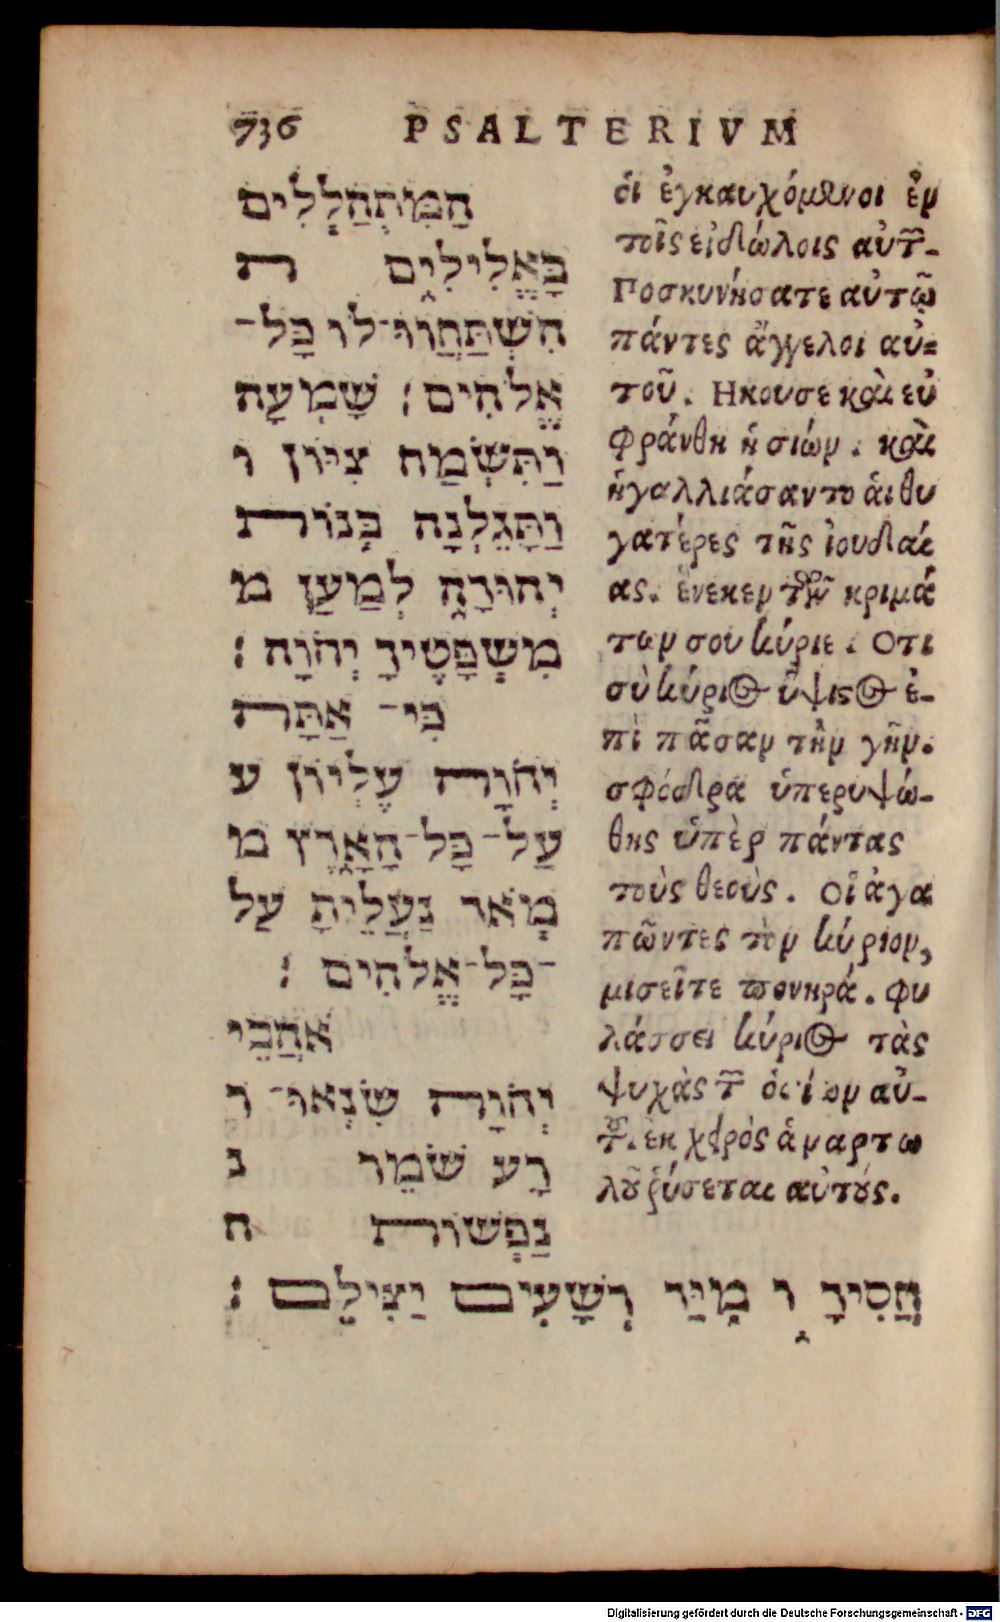 736 PSALTERIVM
הַמִּתְהַלְלִים
בָּאֱלִילִים ה
הִשְׁתַּחֲווּ־לוֹ כָּל־
אֱלֹהִים׃ שָׁמְעָה
וַתִּשְׂמַח צִיּוֹן ו
וַתָּגֵלְנָה בְּנוֹת
יְהוּדָה לְמַעַן מ
מִשְׁפָּטֶיךָ יְהֹוָה׃
כִּי־ אַתָּה
יְהֹוָה עֶלְיוֹן ע
עַל־כָּל־הָאָרֶץ מ
מְאֹד נַעֲלֵיתָ עַל
־כָּל־אֱלֹהִים׃
אֹהֲבֵי
יְהֹוָה שִׂנְאוּ־ ר
רָע שֹׁמֵר נ
נַפְשׁוֹת ח
חֲסִידָיו מִיַּד רְשָׁעִים יַצִּילֵם׃
ὁι ἐγκαυχόμενοι ἐν
τοῖς εἰδώλοις αὐτῶν-
Προσκυνήσατε αὐτῷ
πάντες ἄγγελοι αὐ=
τοῦ. Ηκουσε καὶ εὐ
φράνθη ἡ σιών. καὶ
ἠγαλλιάσαντο ἁι θυ
γατέρες τῆς ἰουδαί
ας. ἕνεκεν τῶν κριμά
των σου κύριε. Οτι
σὺ κύριος ὕψιστος ἐ-
πὶ πᾶσαν τὴν γῆν.
σφόδρα ὑπερυψώ-
θης ὑπὲρ πάντας
τοὺς θεοὺς. Οἱ ἀγα
πῶντες τὸν κύριον,
μισεῖτε πονηρά. φυ
λάσσει κύριος τὰς
ψυχὰς τῶν ὁσίων αὐ-
τοῦ. ἐκ χειρὸς ἁμαρτω
λοῦ ῥύσεται αὐτούς.
Digitalisierung gefördert durch die Deutsche Forschungsgemeinschaft - DFG